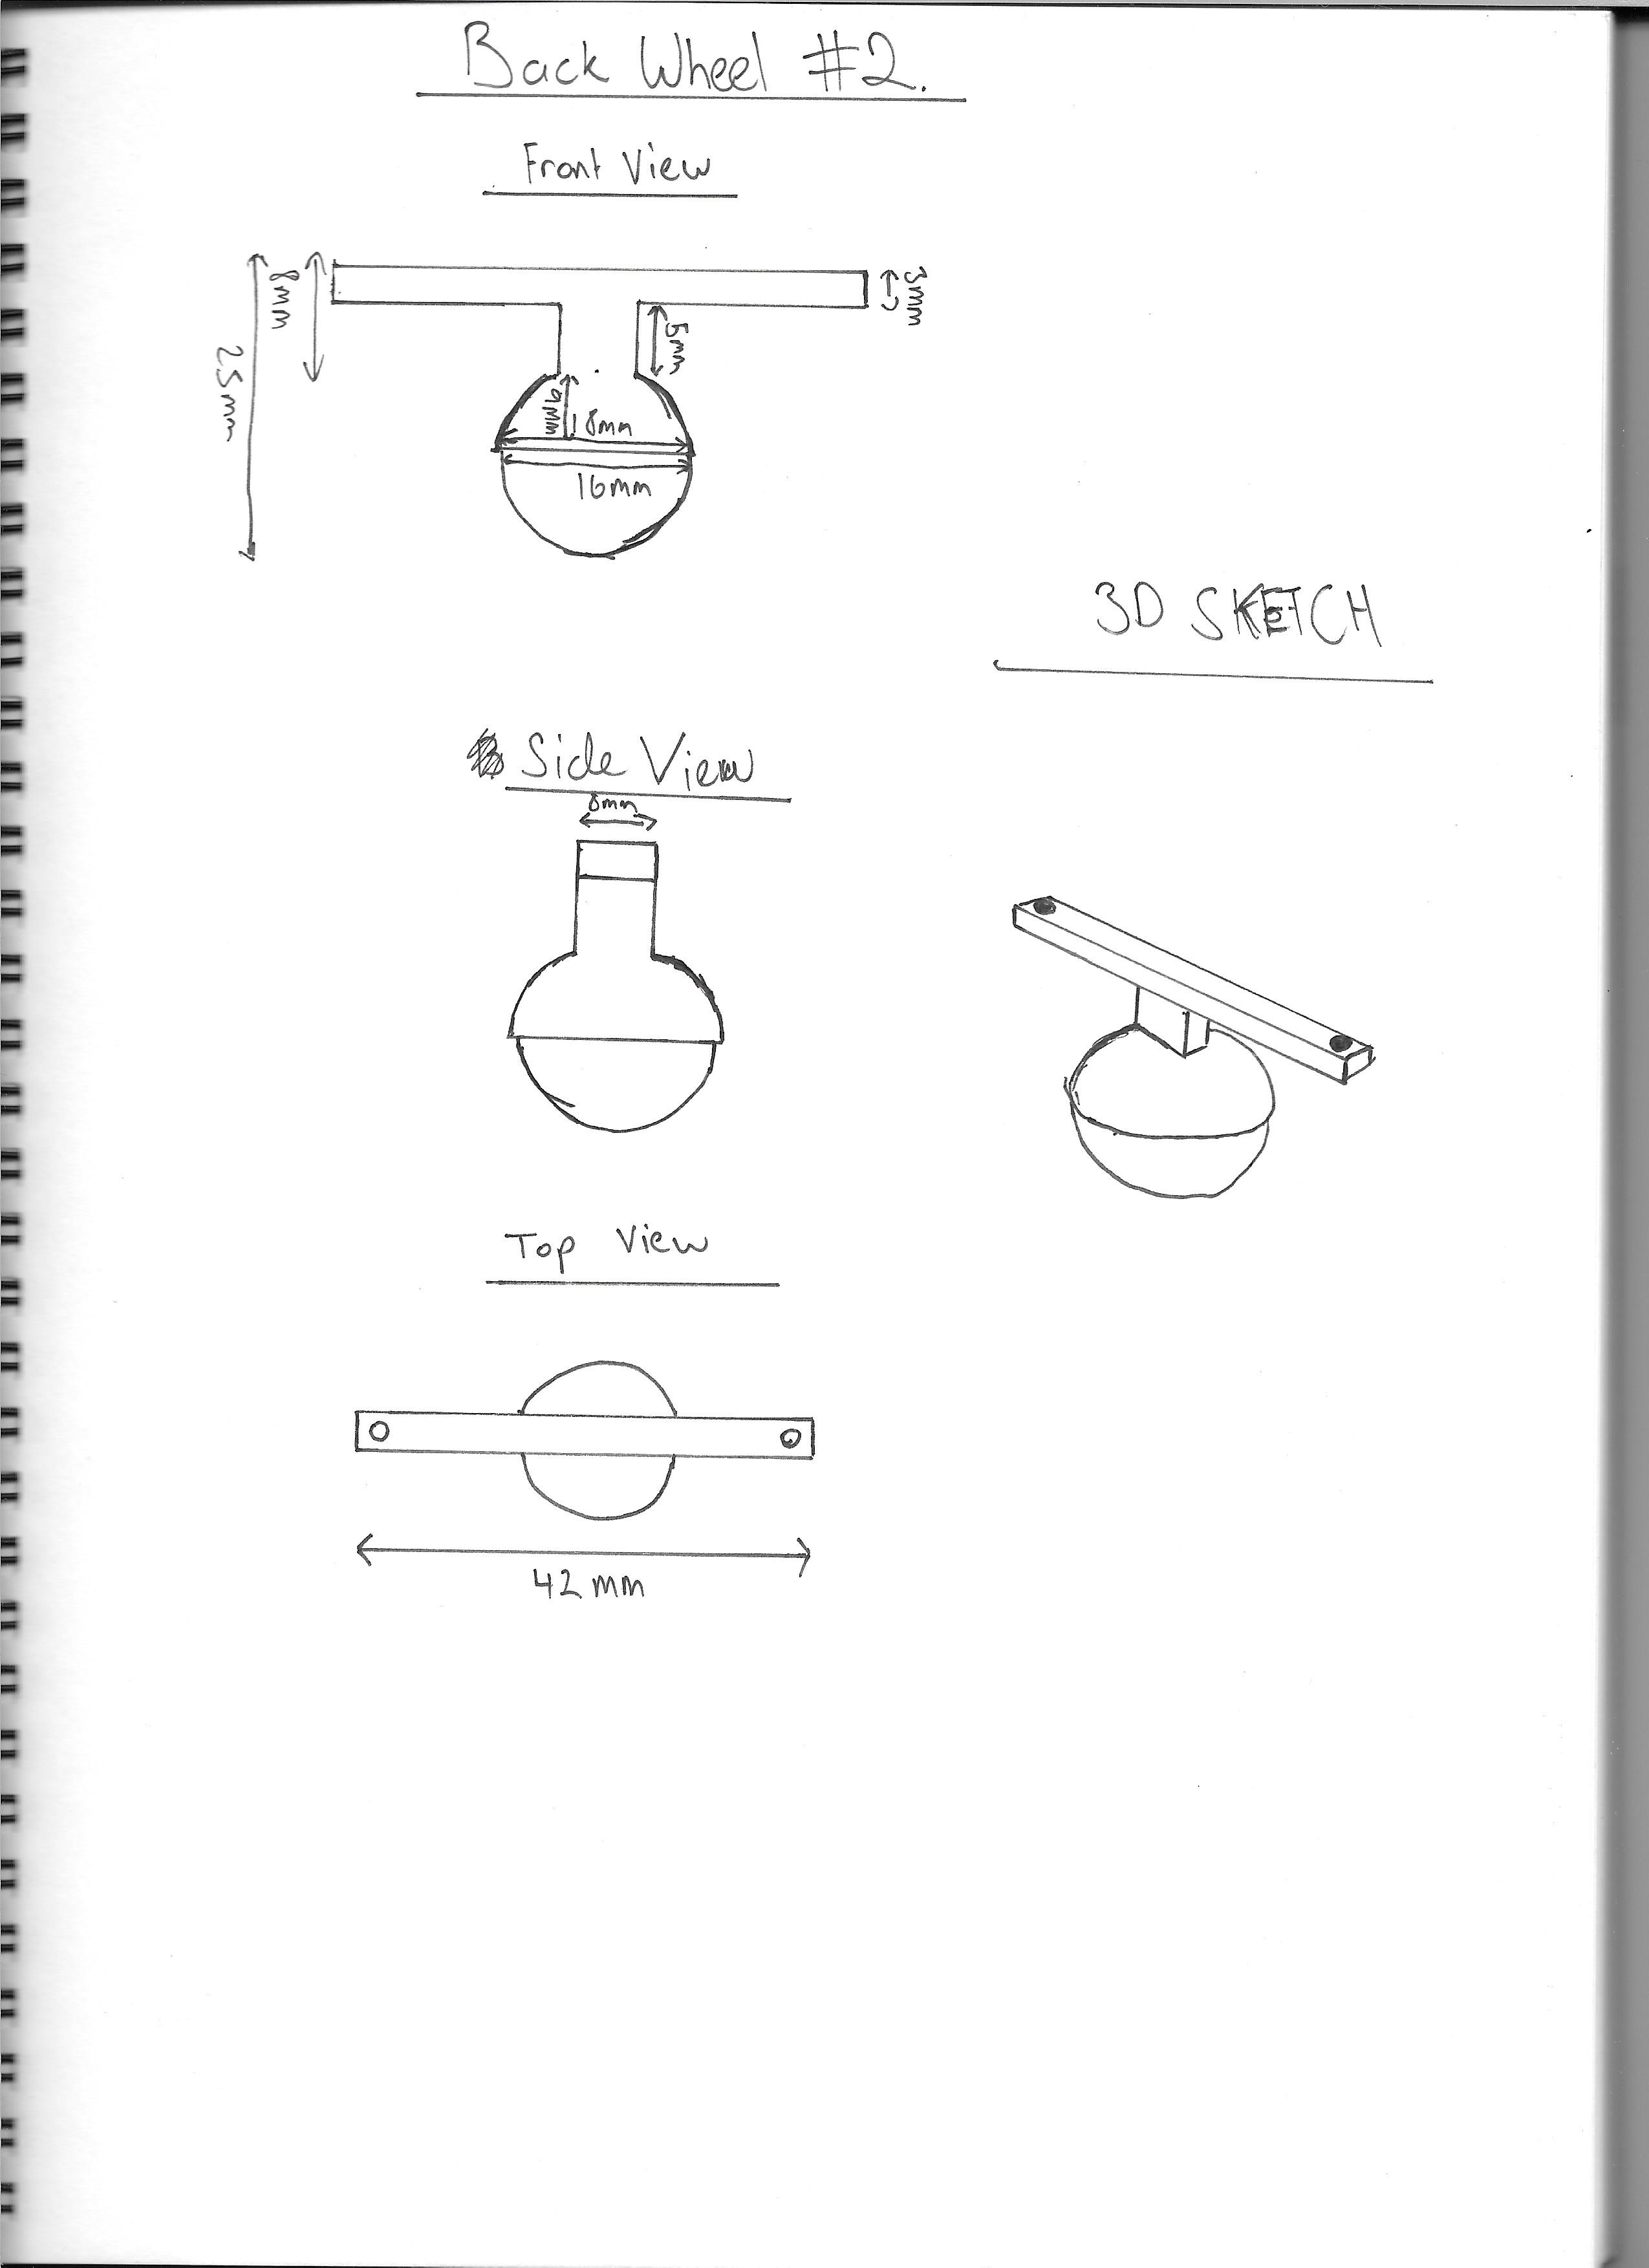 Back Wheel #2.
Front View
3mm
8mm
5mm
25mm
9mm
18mm
16mm
3D SKETCH
Side View
8mm
Top View
42mm